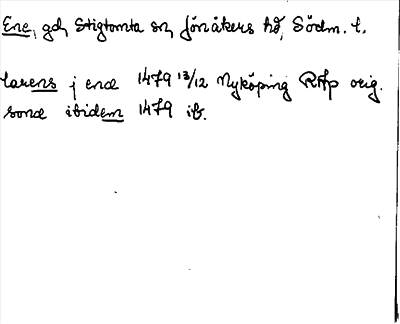 Ene, gd, Stigtomta sn, Jönåkers hd, Södm. l.
larens j ene 1479 13/12 Nyköping RAp orig.
sone ibidem 1479 ib.